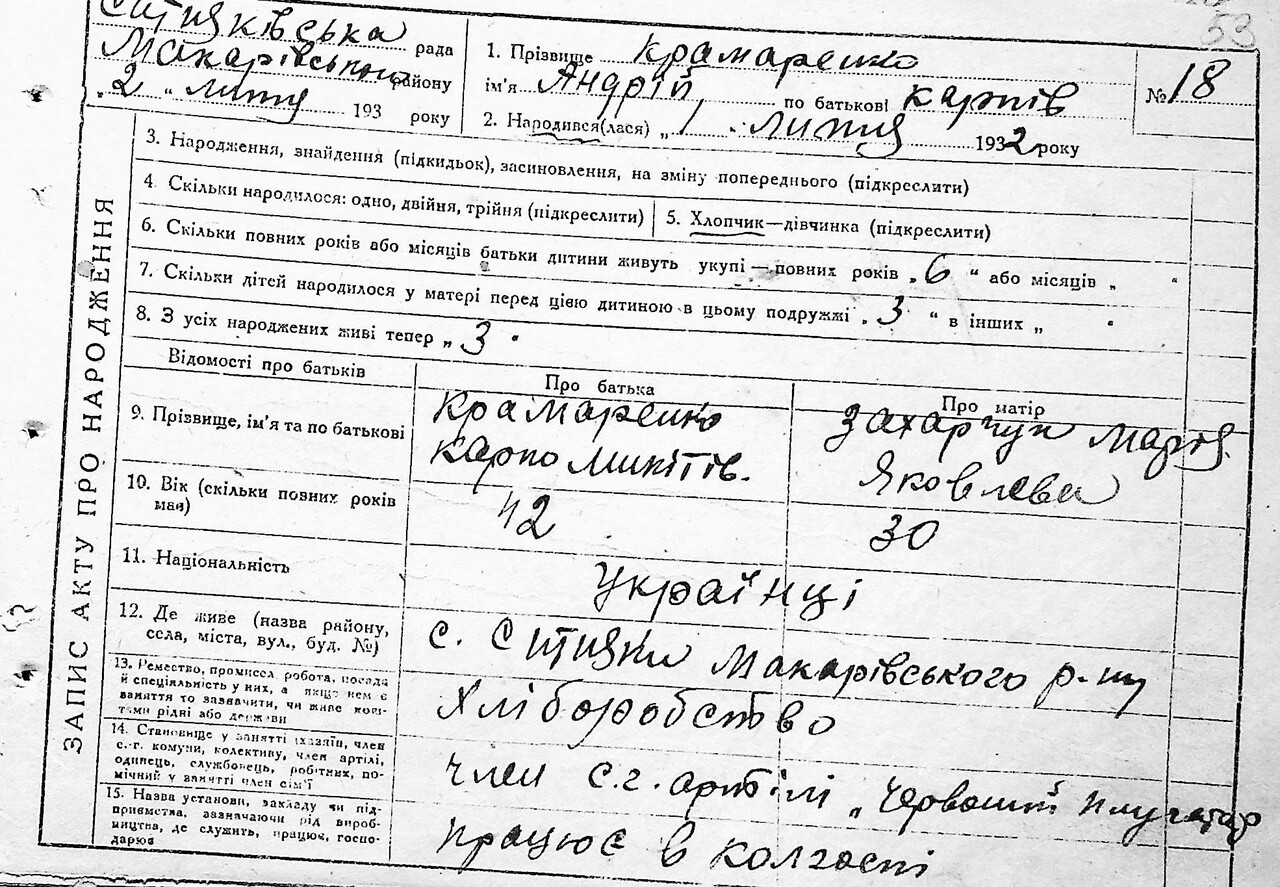 53
Ситняківська рада
Макарівського району
„2 „ лютня 193 року
1. Прізвище Крамаренко
ім'я Андрій по батькові Карпів
2. Народився(лася) „ 1 „ лютня 1932 року
№ 18
ЗАПИС АКТУ ПРО НАРОДЖЕННЯ
3. Народження, знайдення (підкидьок), засиновлення, на зміну попереднього (підкреслити)
4. Скільки народилося: одно, двійня, трійня (підкреслити)
5. Хлопчик—дівчинка (підкреслити)
6. Скільки повних років або місяців батьки дитини живуть укупі — повних років „ 6 “ або місяців „ “
7. Скільки дітей народилося у матері перед цією дитиною в цьому подружжі „ 3 “ в інших „ “
8. З усіх народжених живі тепер „ 3 “
Відомості про батьків
Про батька
Про матір
9. Прізвище, ім'я та по батькові
Крамаренко
Карпо Микітів.
Захарчук Марія
Яковлева
10. Вік (скільки повних років
має)
42
30
11. Національність
Українці
12. Де живе (назва району,
села, міста, вул., буд. №)
с. Ситняки Макарівського р-ну
13. Ремество, промисел, робота, посада
й спеціяльність у них, а якщо нем є
заняття то зазначити, чи живе кош-
тами рідні або держави
Хліборобство
14. Становище у занятті (хазяїн, член
с.-г. комуни, колективу, член артілі,
одинець, службовець, робітник, по-
мічний у занятті член сім'ї
член с.г. артілі „Червоний плугатар
15. Назва установи, закладу чи під-
приємства, зазначаючи рід вироб-
ництва, де служить, працює, госпо-
дарює
працює в колгоспі